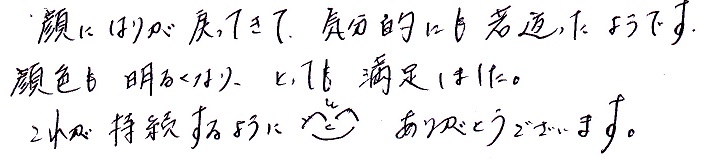 顔にはりが戻ってきて、気分的にも若返ったようです。
顔色も明るくなり、とっても満足しました。
これが持続するように ありがとうございます。